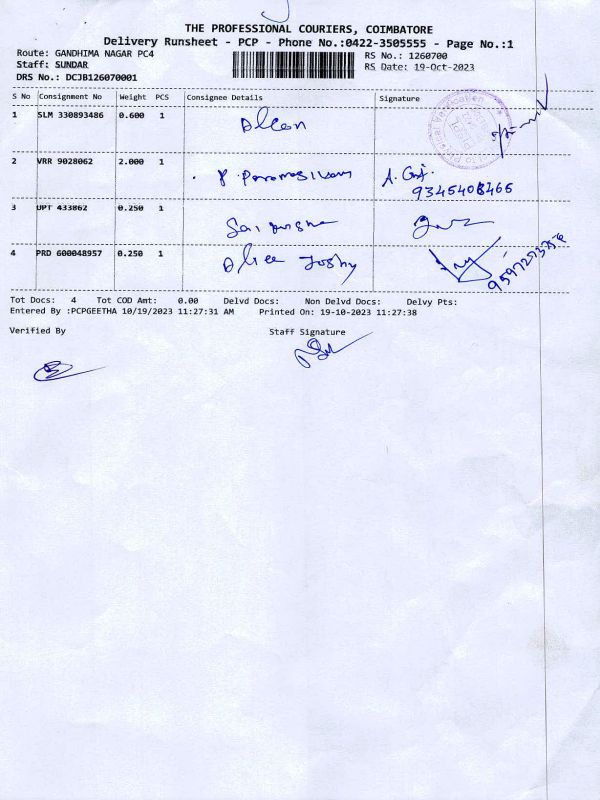 THE PROFESSIONAL COURIERS, COIMBATORE
Delivery Runsheet - PCP - Phone No.:0422-3505555 - Page No.:1
Route: GANDHIMA NAGAR PC4
RS No.: 1260700
Staff: SUNDAR
RS Date: 19-Oct-2023
DRS No.: DCJB126070001
S No Consignment No Weight PCS Consignee Details Signature
1 SLM 330893486 0.600 1
2 VRR 9028062 2.000 1 P. Paramasivam A.
3 UPT 433862 0.250 1 Sai
4 PRD 600048957 0.250 1 Joshy
Tot Docs: 4 Tot COD Amt: 0.00 Delvd Docs: Non Delvd Docs: Delvy Pts:
Entered By :PCPGEETHA 10/19/2023 11:27:31 AM Printed On: 19-10-2023 11:27:38
Verified By Staff Signature